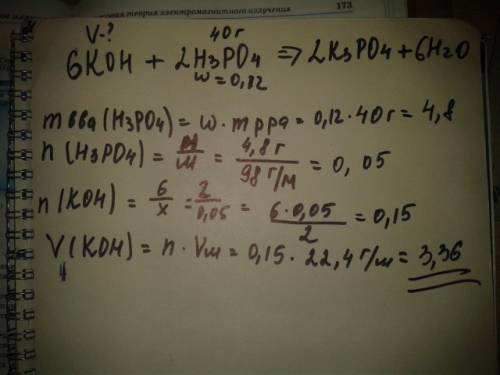 рия электромагнитного излучения 173
V-? 40г
6KOH + 2H3PO4 => 2K3PO4 + 6H2O
w=0,82
m вва (H3PO4) = w · m рра = 0,12 · 40г = 4,8
n (H3PO4) = m/M = 4,8 г/98 г/м = 0,05
n (KOH) = 6/x = 2/0,05 = 6·0,05/2 = 0,15
V (KOH) = n · Vм = 0,15 · 22,4 г/м = 3,36